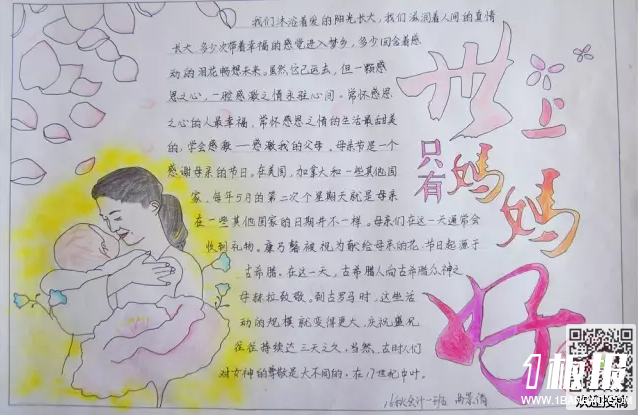 我们沐浴着爱的阳光长大，我们滋润着人间的真情
长大，多少次带着幸福的感觉进入梦乡，多少回含着感
动的泪花畅想未来。虽然，它已远去，但一颗感
恩之心，一腔感激之情永驻心间。常怀感恩
之心的人最幸福，常怀感恩之情的生活最甜美
的，学会感激——感激我的父母。母亲节是一个
感谢母亲的节日。在美国，加拿大和一些其他国
家，每年5月的第二个星期天就是母亲
在一些其他国家的日期并不一样。母亲们在这一天通常会
收到礼物。康乃馨被视为献给母亲的花。节日起源于
古希腊。在这一天，古希腊人向古希腊众神之
母赫拉致敬。到古罗马时，这些活
动的规模就变得更大，庆祝盛况
往往持续达三天之久，当然，古时人们
对女神的尊敬是大不同的。在17世纪中叶。
世上
只有
妈妈
好
1板报
WWW.1BANBAO.COM
欢迎投稿